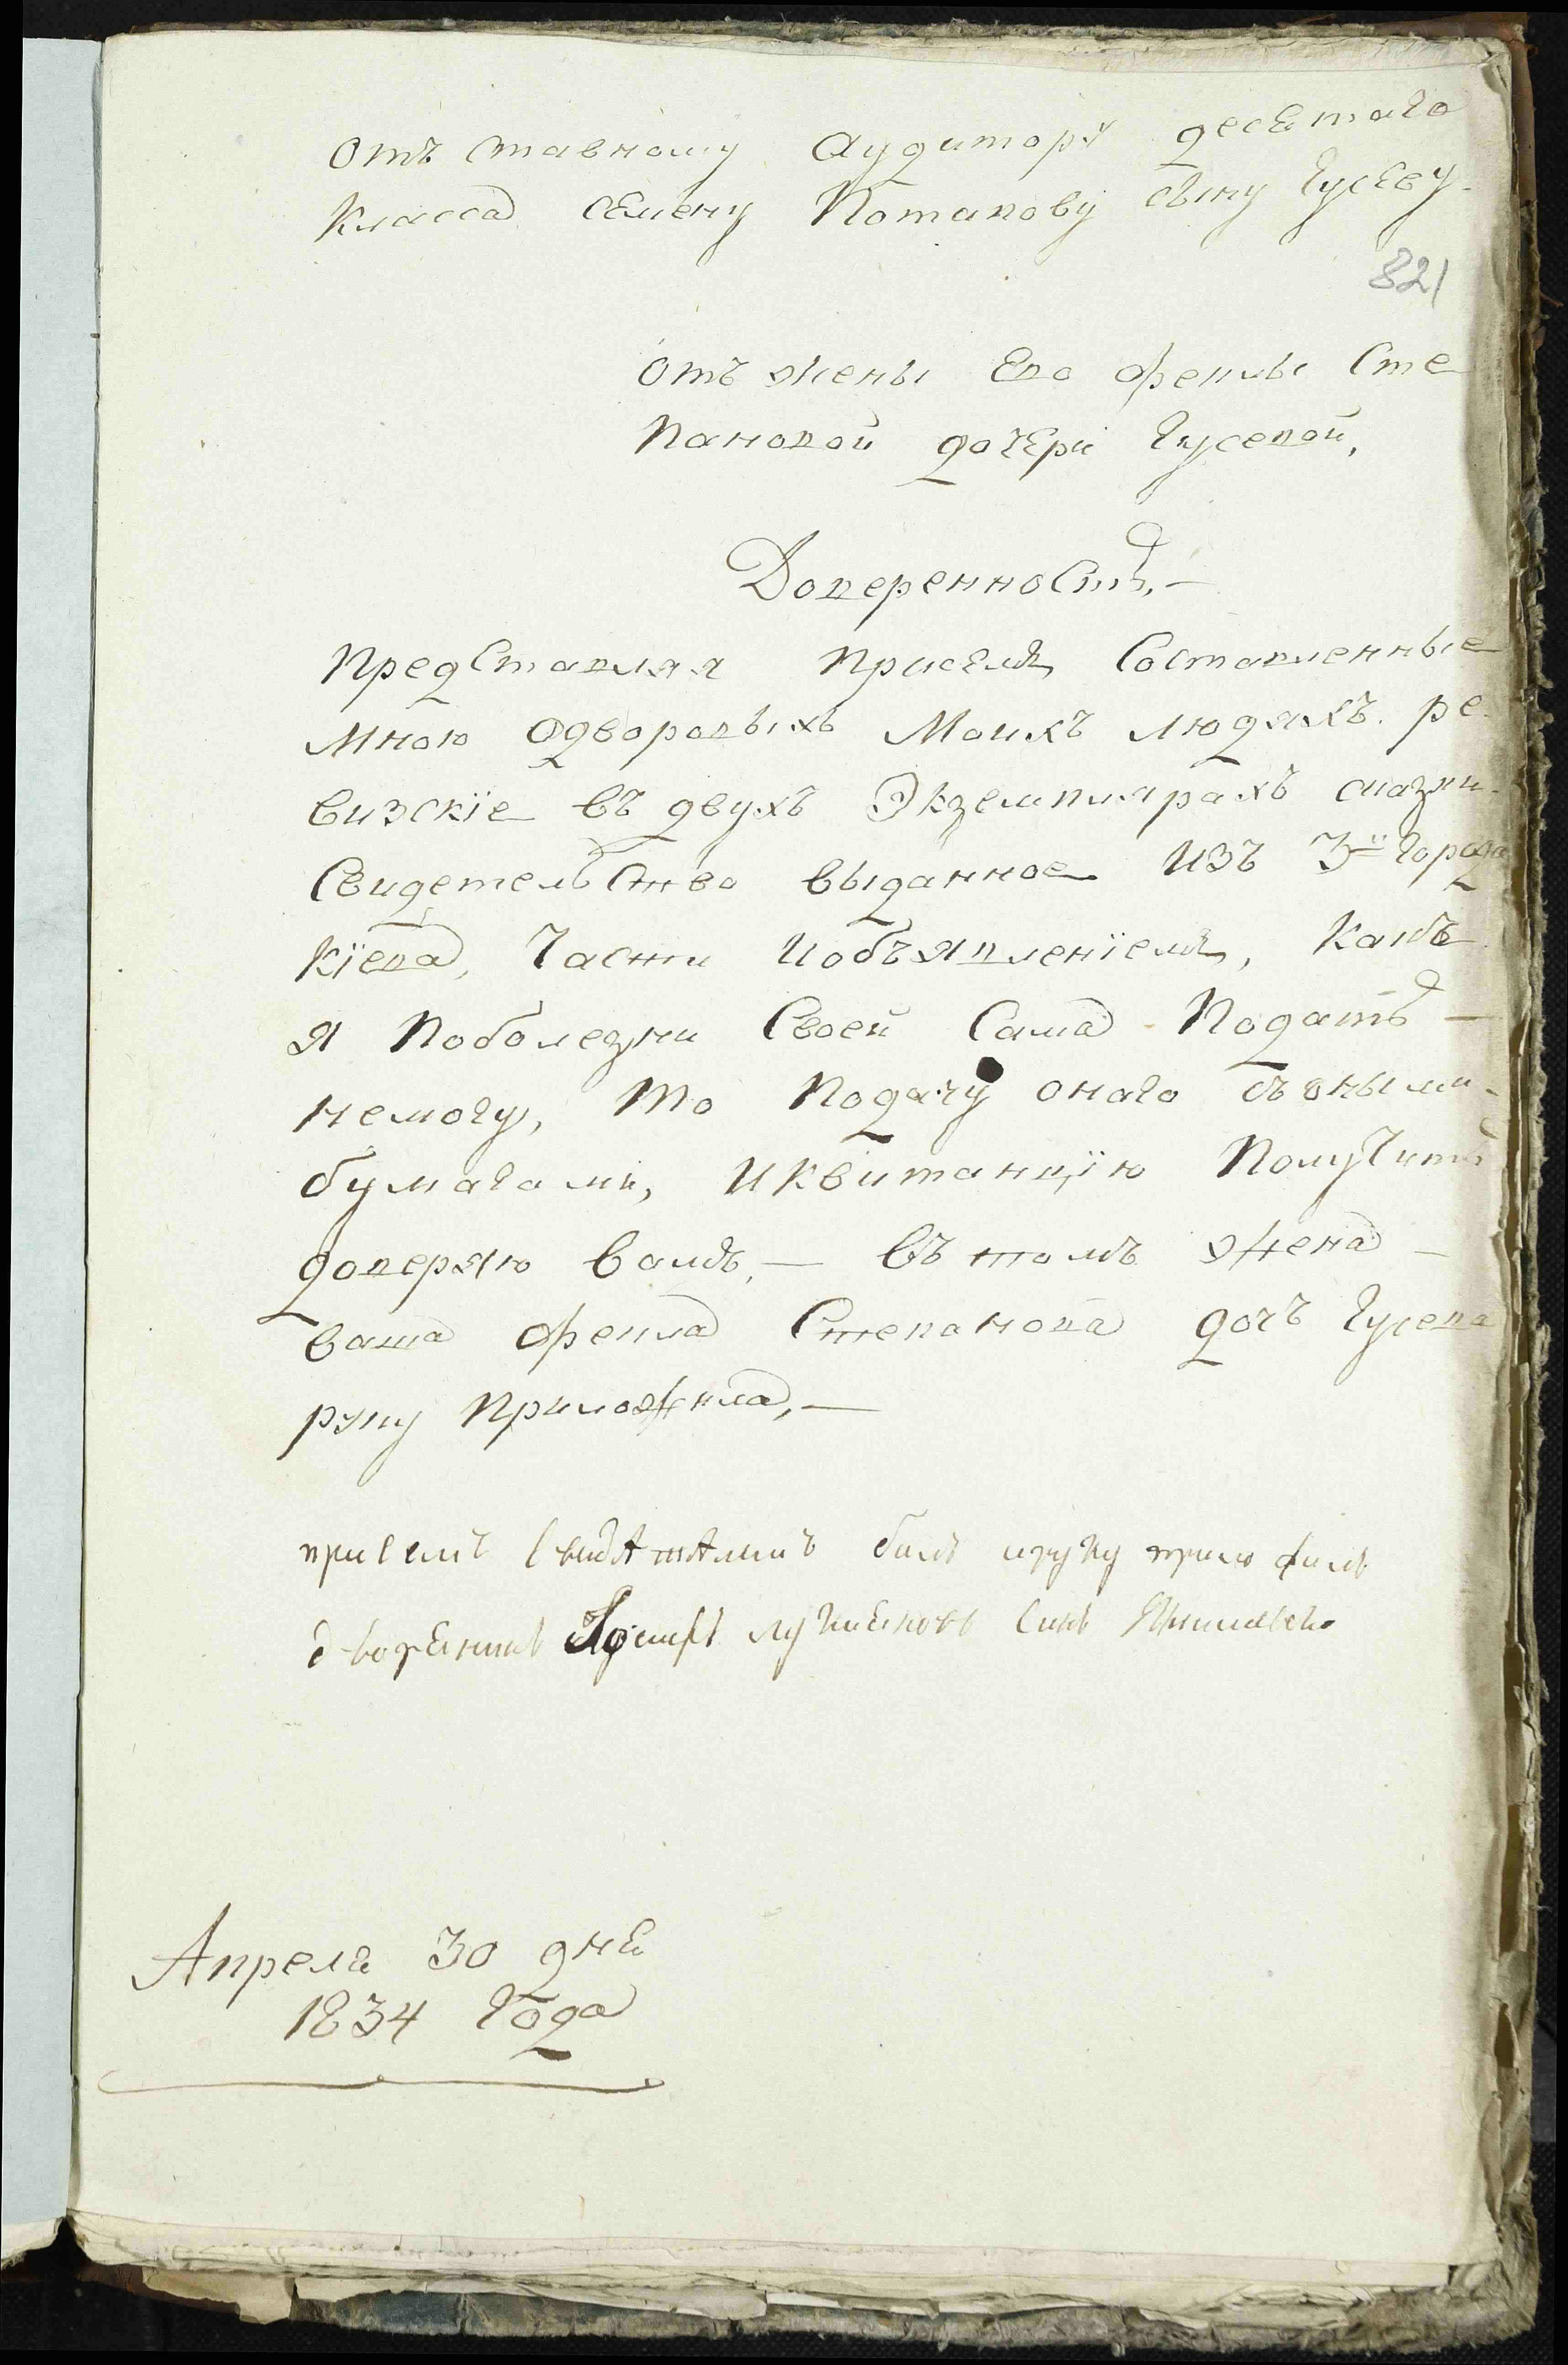 Отъ ставному Аудитору десетаго
Класса Семену Потапову сыну Гусеву
821
Отъ жены Его Феклы Сте
пановой дочери Гусевой,
Доверенность,—
Представляя присемъ Составленные
Мною Одворовыхъ Моихъ людяхъ ре
визскїе въ двухъ Экземплярахъ сказки
Свидетельство выданное Изъ 3й города
Кїева, Части Иобъявленїемъ, какъ
я Поболезни Своей Сама Подать —
немогу, то Подачу онаго съ оными
бумагами, Иквитанцїю Получить
доверяю вамъ,— въ томъ жена —
ваша Фекла Степанова дочъ Гусева
руку Приложила,—
присемъ свидетелемъ билъ ируку приложилъ
дворенинъ синъ
Апреля 30 дне
1834 года